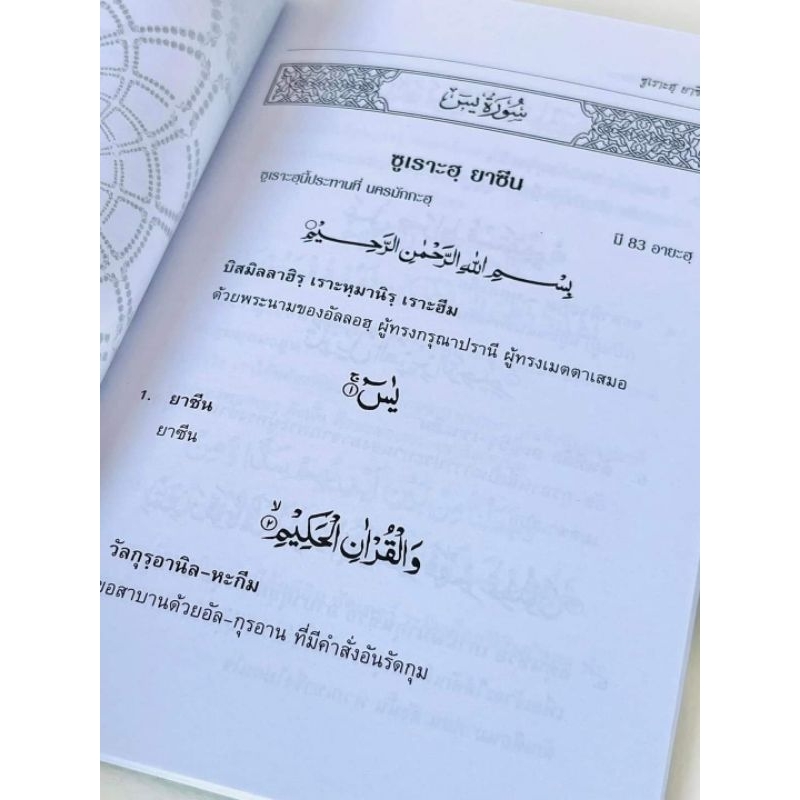 ซูเราะฮฺ ยาซี
سُورَةُ يٰسٓ
ซูเราะฮฺ ยาซีน
ซูเราะฮฺนี้ประทานที่ นครมักกะฮฺ
มี 83 อายะฮฺ
بِسْمِ اللهِ الرَّحْمٰنِ الرَّحِيْمِ
บิสมิลลาฮิรฺ เราะหฺมานิรฺ เราะฮีม
ด้วยพระนามของอัลลอฮฺ ผู้ทรงกรุณาปรานี ผู้ทรงเมตตาเสมอ
يٰسٓ ۚ ﴿١﴾
1. ยาซีน
ยาซีน
وَالْقُرْاٰنِ الْحَكِيْمِ ۙ ﴿٢﴾
วัลกุรฺอานิล-หะกีม
ขอสาบานด้วยอัล-กุรอาน ที่มีคำสั่งอันรัดกุม